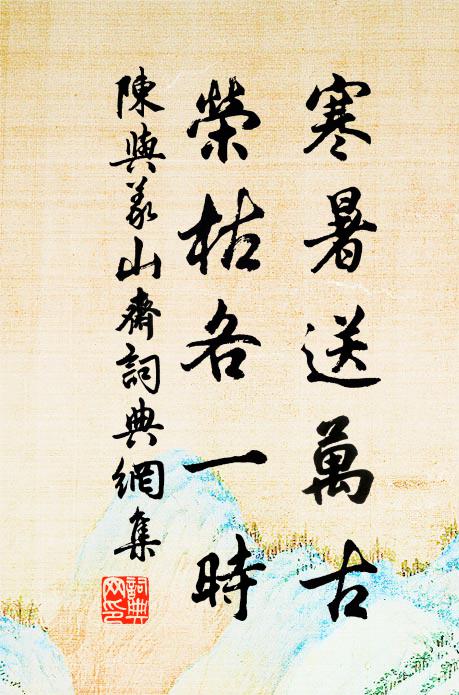 寒暑送萬古
榮枯各一時
陳與義山齋詞典網集
詞典